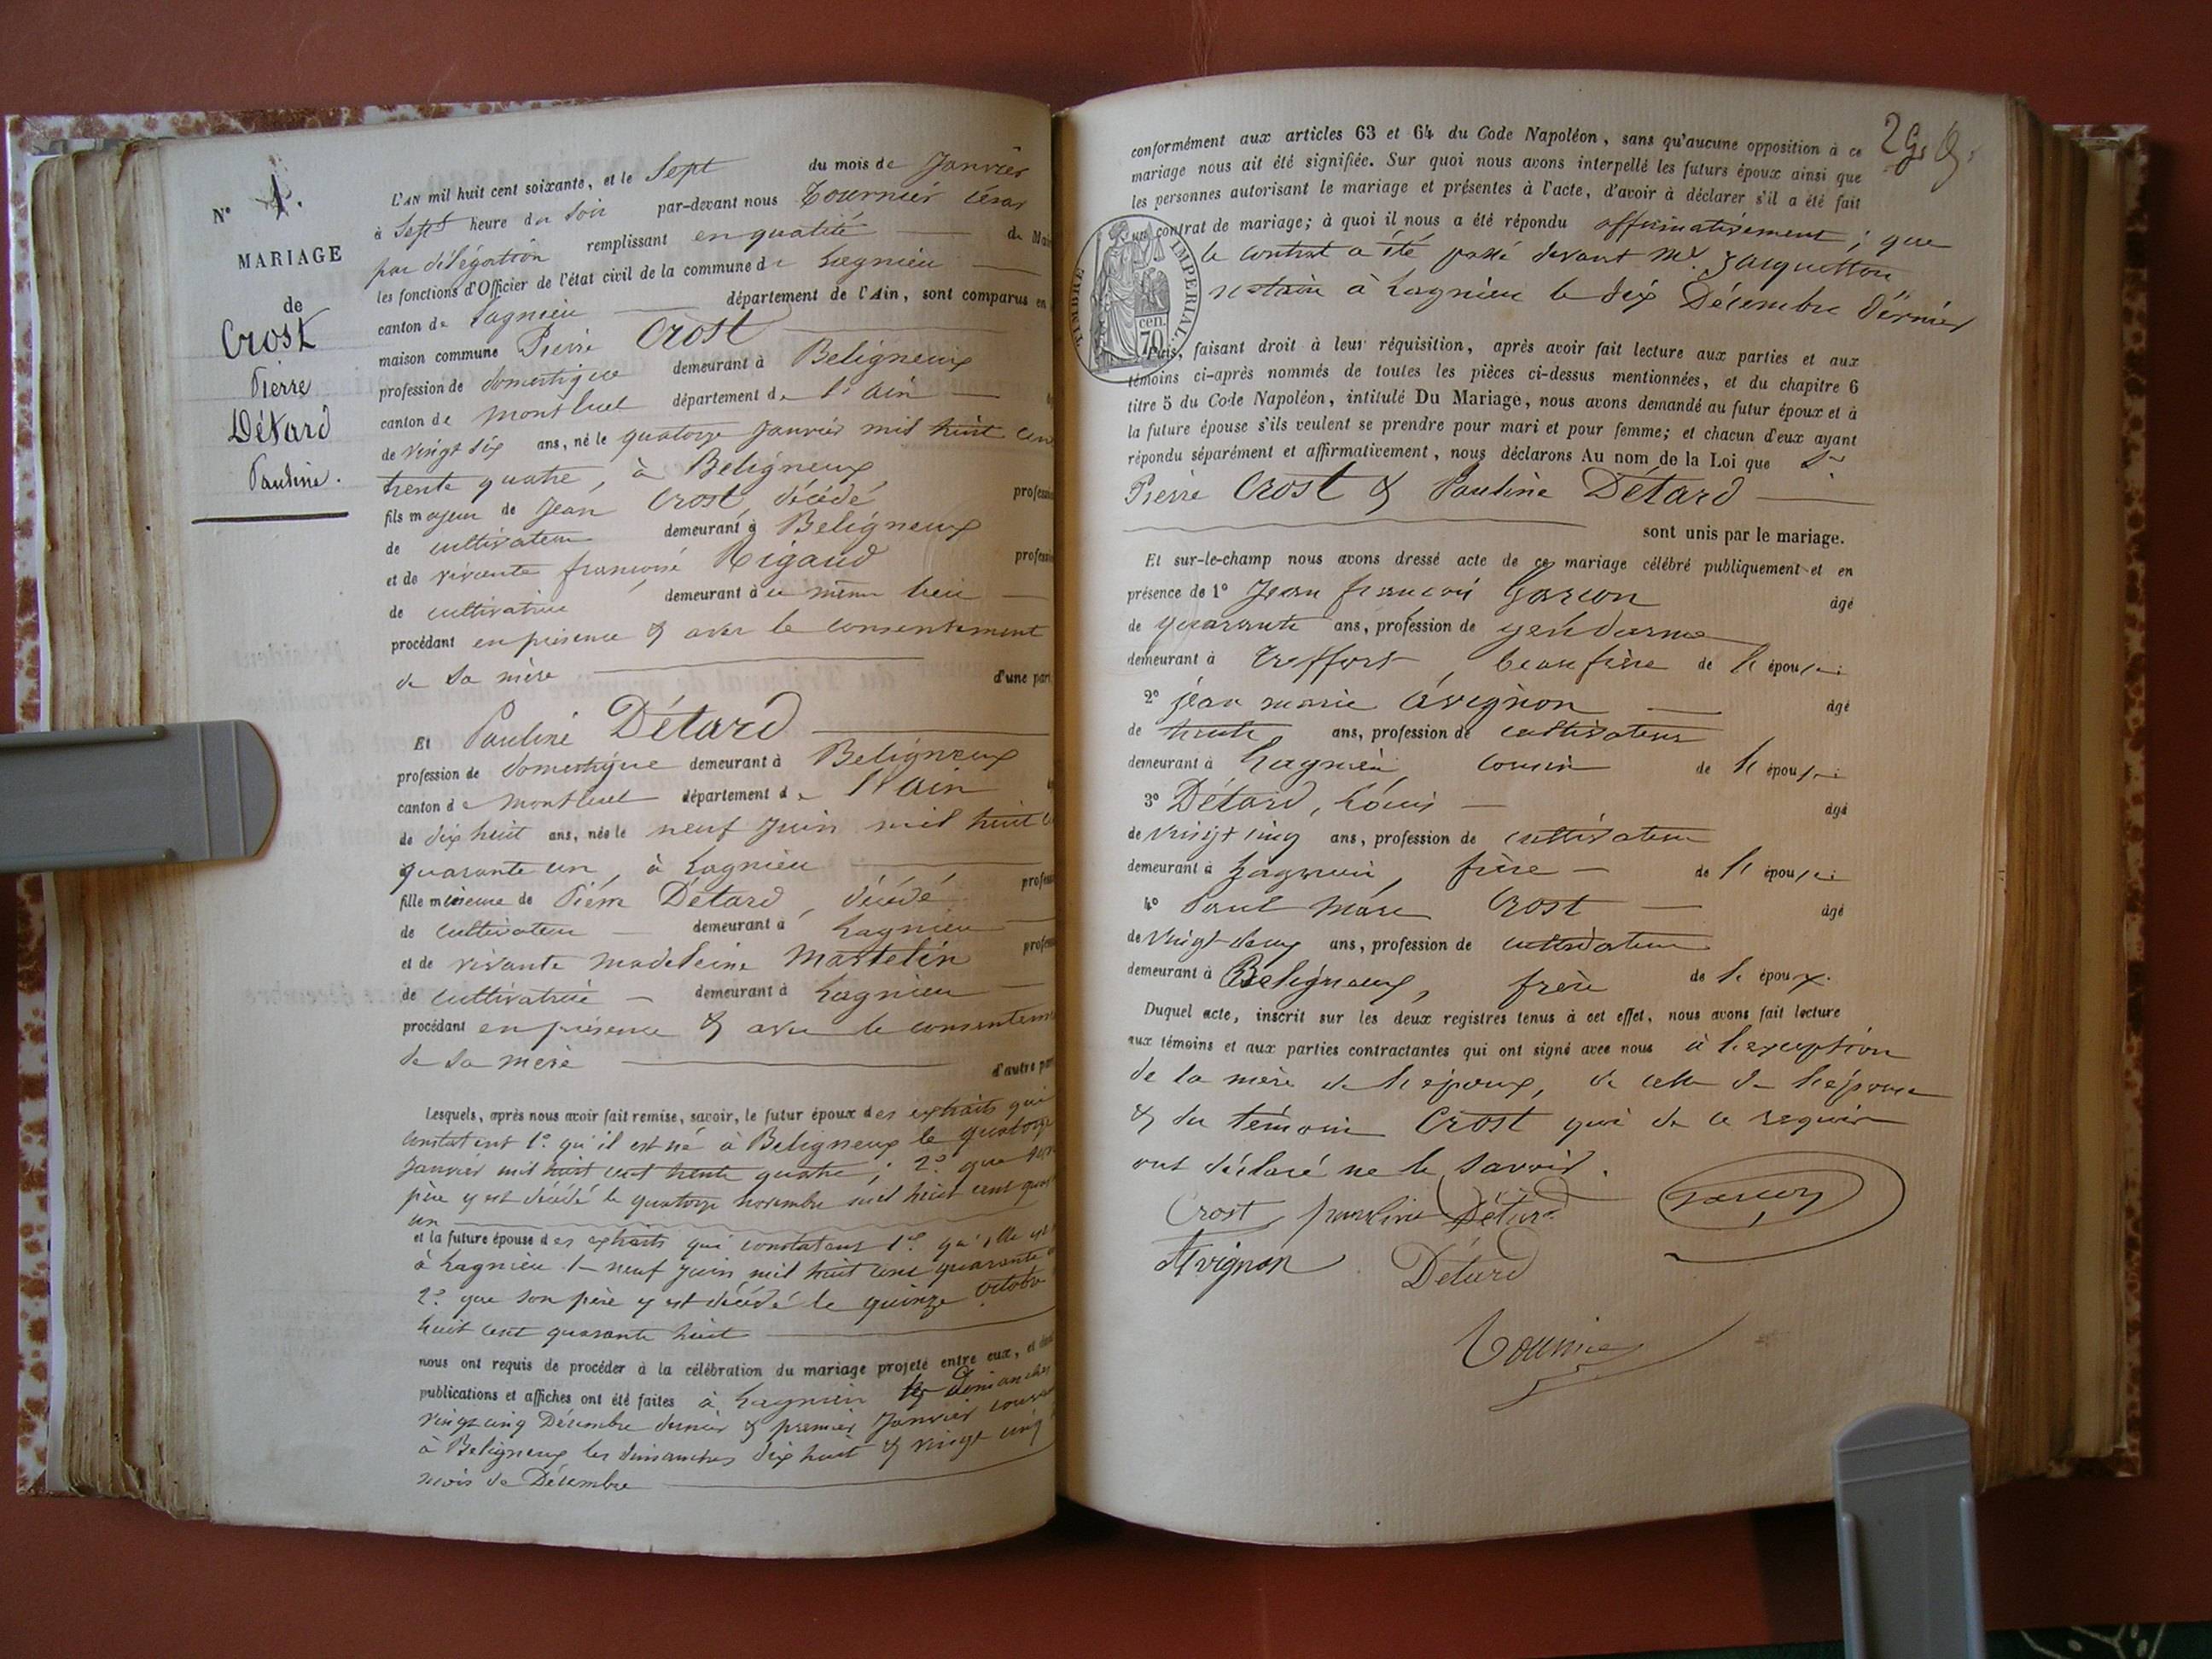 N° 1.
MARIAGE
de
Crost
Pierre
Détard
Pauline.
L'AN mil huit cent soixante, et le Sept du mois de Janvier
à Sept heure du Soir par-devant nous Tournier César
par délégation remplissant en qualité de Mai
les fonctions d'Officier de l'état civil de la commune de Lagnieu
canton de Lagnieu département de l'Ain, sont comparus en
maison commune Pierre Crost
profession de domestique demeurant à Beligneux
canton de Montluel département de l'Ain
de vingt six ans, né le quatorze Janvier mil huit cen
trente quatre, à Beligneux
fils majeur de Jean Crost, décédé professio
de cultivateur demeurant à Beligneux
et de vivante françoise Rigaud professio
de cultivatrice demeurant à ce même lieu
procédant en présence & avec le consentement
de sa mère d'une part
Et Pauline Détard
profession de domestique demeurant à Beligneux
canton de Montluel département de l'Ain
de dix huit ans, née le neuf Juin mil huit c
quarante un, à Lagnieu
fille mineure de Pierre Détard, décédé profess
de cultivateur demeurant à Lagnieu
et de vivante Madeleine Martelin profess
de cultivatrice demeurant à Lagnieu
procédant en présence & avec le consentem
de sa mère d'autre part
Lesquels, après nous avoir fait remise, savoir, le futur époux des extraits qui
constatent 1° qu'il est né à Beligneux le quatorze
Janvier mil huit cent trente quatre; 2° que son
père y est décédé le quatorze novembre mil huit cent quar
un
et la future épouse des extraits qui constatent 1° qu'elle est
à Lagnieu le neuf Juin mil huit cent quarante
2° que son père y est décédé le quinze octobr
huit cent quarante huit
nous ont requis de procéder à la célébration du mariage projeté entre eux, et dont
publications et affiches ont été faites à Lagnieu les dimanches
vingt cinq Décembre dernier & premier Janvier cour
à Beligneux les dimanches dix huit & vingt cinq
mois de Décembre
conformément aux articles 63 et 64 du Code Napoléon, sans qu'aucune opposition à ce
mariage nous ait été signifiée. Sur quoi nous avons interpellé les futurs époux ainsi que
les personnes autorisant le mariage et présentes à l'acte, d'avoir à déclarer s'il a été fait
un contrat de mariage; à quoi il nous a été répondu affirmativement; que
le contrat a été passé devant Me Jacquetton
notaire à Lagnieu le dix Décembre dernier
TIMBRE IMPERIAL
70 cen.
Puis, faisant droit à leur réquisition, après avoir fait lecture aux parties et aux
témoins ci-après nommés de toutes les pièces ci-dessus mentionnées, et du chapitre 6
titre 5 du Code Napoléon, intitulé Du Mariage, nous avons demandé au futur époux et à
la future épouse s'ils veulent se prendre pour mari et pour femme; et chacun d'eux ayant
répondu séparément et affirmativement, nous déclarons Au nom de la Loi que
Pierre Crost & Pauline Détard
sont unis par le mariage.
Et sur-le-champ nous avons dressé acte de ce mariage célébré publiquement et en
présence de 1° Jean françois Garcon âgé
de quarante ans, profession de gendarme
demeurant à Treffort, beau frère de l'épouse
2° jean marie Avignon âgé
de trente ans, profession de cultivateur
demeurant à Lagnieu, cousin de l'épouse
3° Détard, Louis âgé
de vingt cinq ans, profession de cultivateur
demeurant à Lagnieu, frère de l'épouse
4° Paul Marc Crost âgé
de vingt-deux ans, profession de cultivateur
demeurant à Beligneux, frère de l'époux.
Duquel acte, inscrit sur les deux registres tenus à cet effet, nous avons fait lecture
aux témoins et aux parties contractantes qui ont signé avec nous à l'exception
de la mère de l'époux, de celle de l'épouse
& du témoin Crost qui de ce requis
ont déclaré ne le savoir.
Crost pauline Détard Garcon
Avignon Détard
Tournier